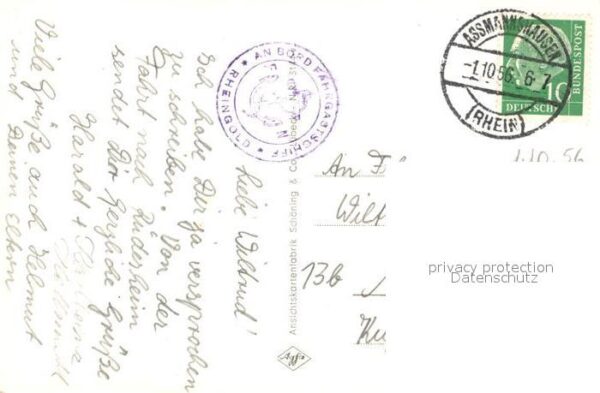 Liebe Wiltrud!
Ich habe Dir ja versprochen
zu schreiben. Von der
Fahrt nach Rüdesheim
sendet Dir herzliche Grüße
Harald +
Viele Grüße auch Helmut
und Deinen Eltern
AN BORD FAHRGASTSCHIFF
* RHEINGOLD *
Ansichtskartenfabrik Schöning & Co
Agfa
ASSMANNSHAUSEN
-1.10.56.-6-7
(RHEIN)
10
DEUTSCHE
BUNDESPOST
1.10.56
An
Wilt
13b
privacy protection
Datenschutz